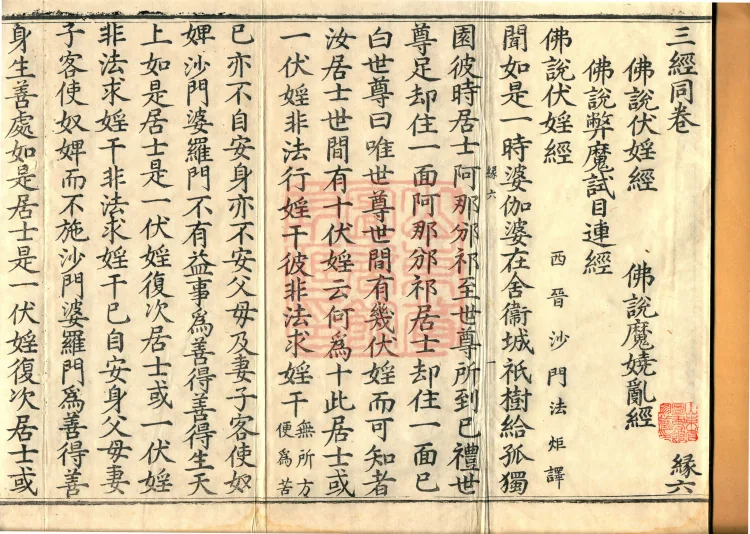 三經同卷
佛說伏婬經 佛說魔嬈亂經 緣六
佛說弊魔試目連經
佛說伏婬經 西晉沙門法炬譯
聞如是一時婆伽婆在舍衞城祇樹給孤獨
緣六 一
園彼時居士阿那邠祁至世尊所到已禮世
尊足却住一面阿那邠祁居士却住一面已
白世尊曰唯世尊世間有幾伏婬而可知者
汝居士世間有十伏婬云何爲十此居士或
一伏婬非法行婬干彼非法求婬干無所方便爲苦
已亦不自安身亦不安父母及妻子客使奴
婢沙門婆羅門不有益事爲善得善得生天
上如是居士是一伏婬復次居士或一伏婬
非法求婬干非法求婬干已自安身父母妻
子客使奴婢而不施沙門婆羅門爲善得善
身生善處如是居士是一伏婬復次居士或